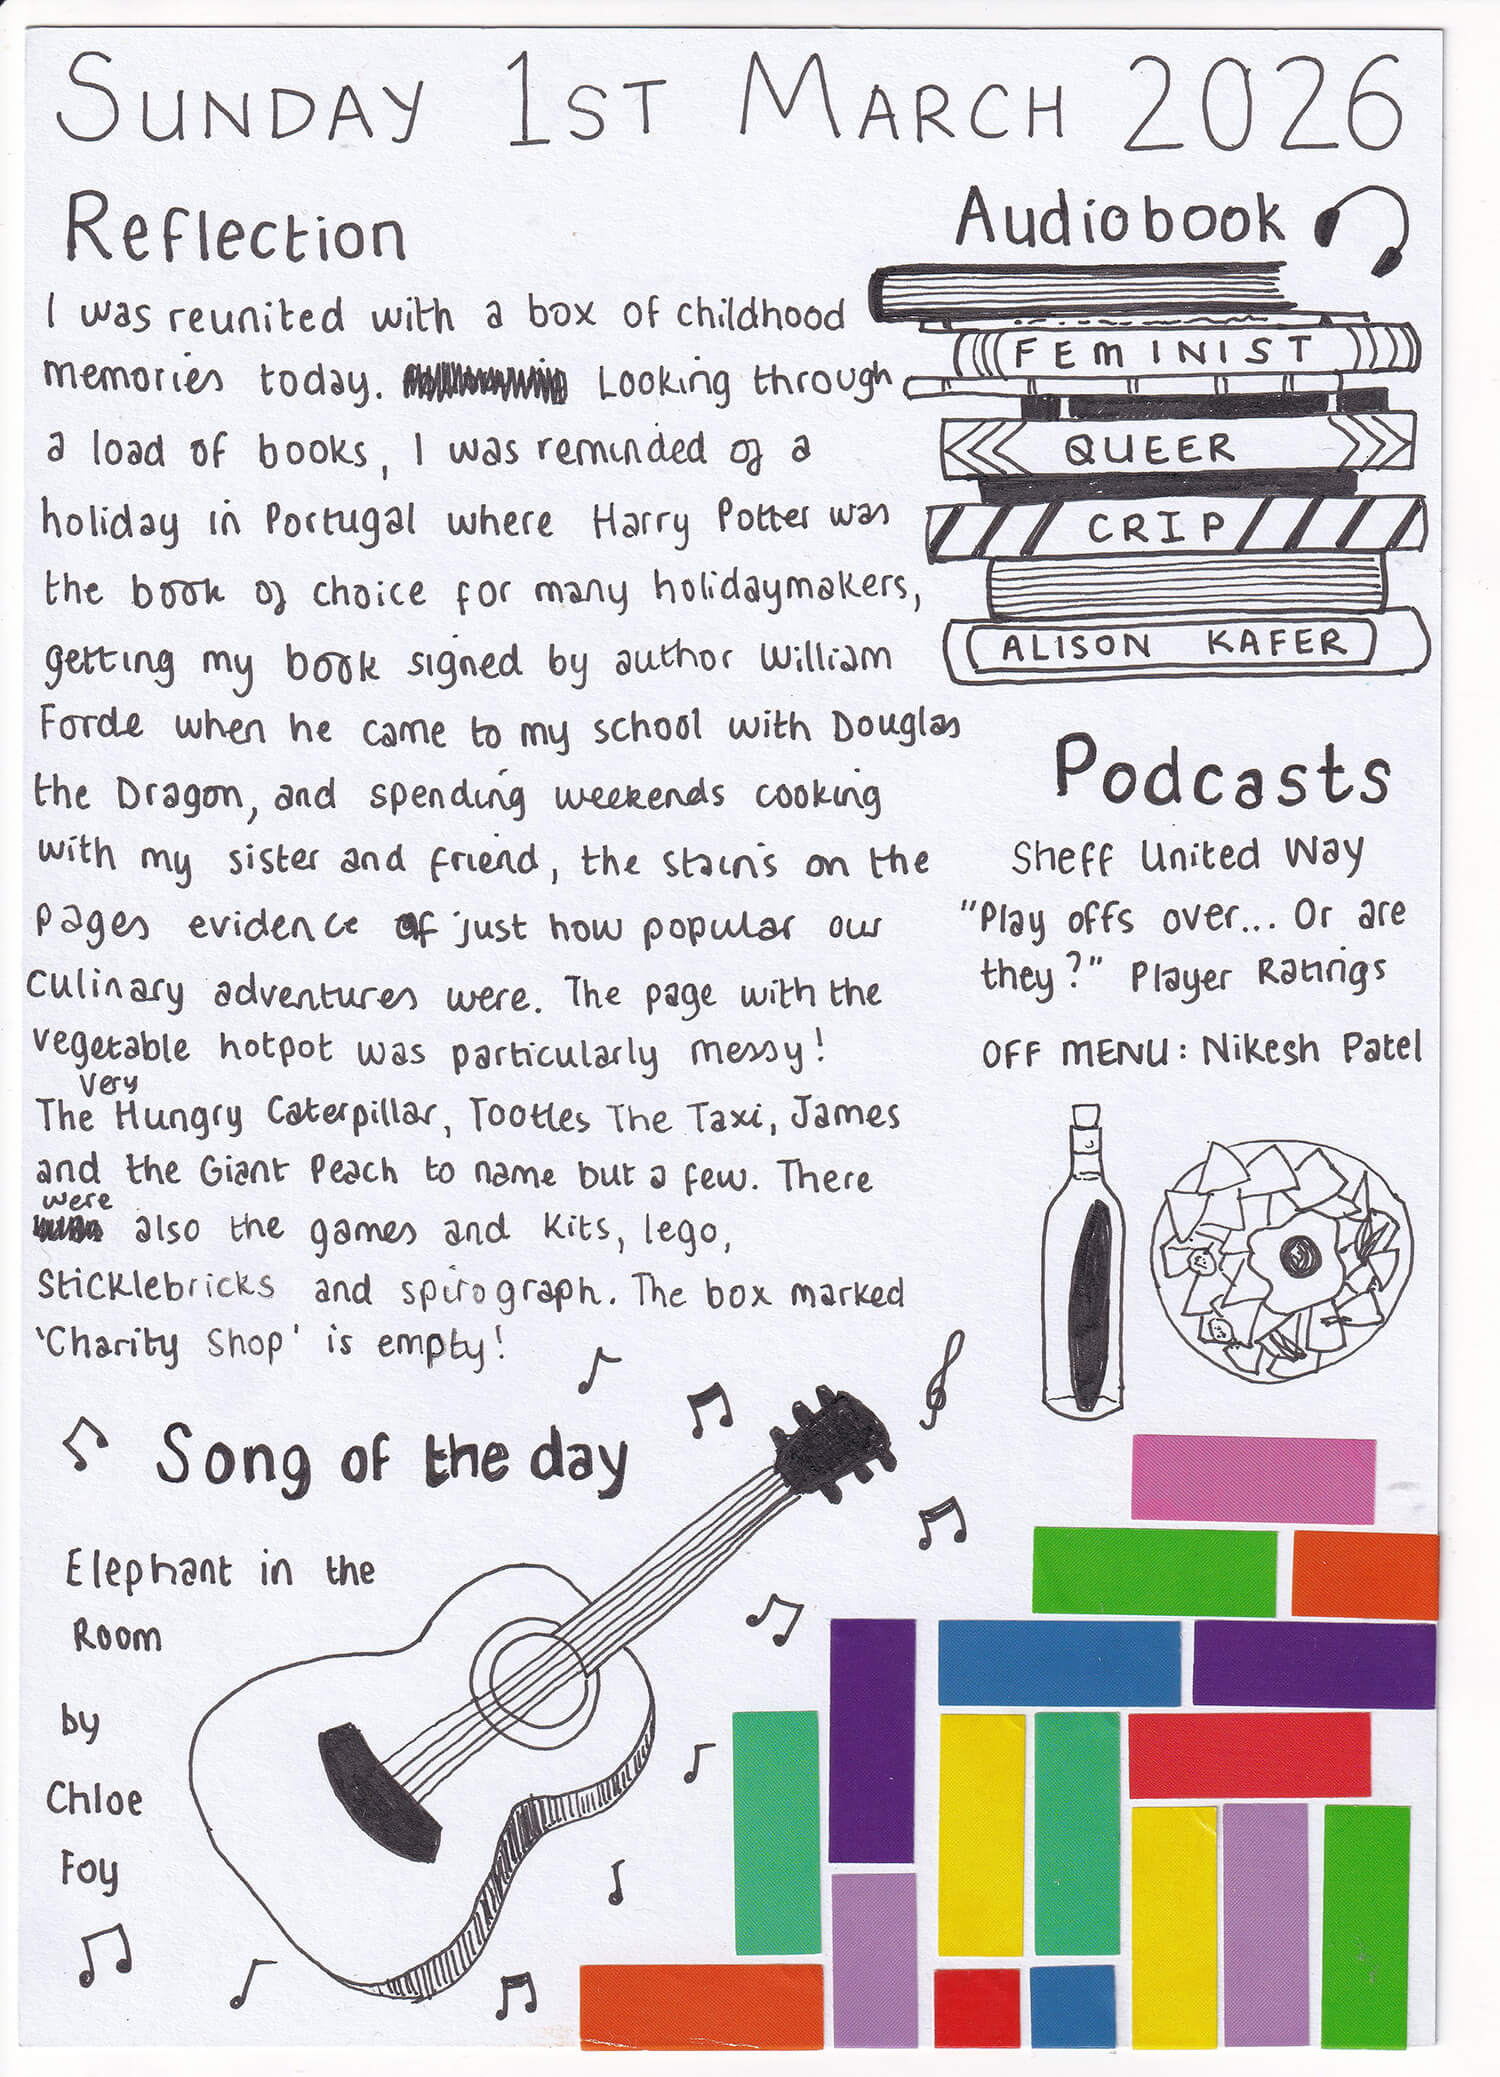 SUNDAY 1ST MARCH 2026
Reflection
I was reunited with a box of childhood
memories today. Looking through
a load of books, I was reminded of a
holiday in Portugal where Harry Potter was
the book of choice for many holidaymakers,
getting my book signed by author William
Forde when he came to my school with Douglas
the Dragon, and spending weekends cooking
with my sister and friend, the stains on the
pages evidence of just how popular our
culinary adventures were. The page with the
vegetable hotpot was particularly messy!
very
The Hungry Caterpillar, Tootles The Taxi, James
and the Giant Peach to name but a few. There
were
also the games and kits, lego,
sticklebricks and spirograph. The box marked
'Charity Shop' is empty!
Audiobook
FEMINIST
QUEER
CRIP
ALISON KAFER
Podcasts
Sheff United Way
"Play offs over... Or are
they?" Player Ratings
OFF MENU: Nikesh Patel
Song of the day
Elephant in the
Room
by
Chloe
Foy